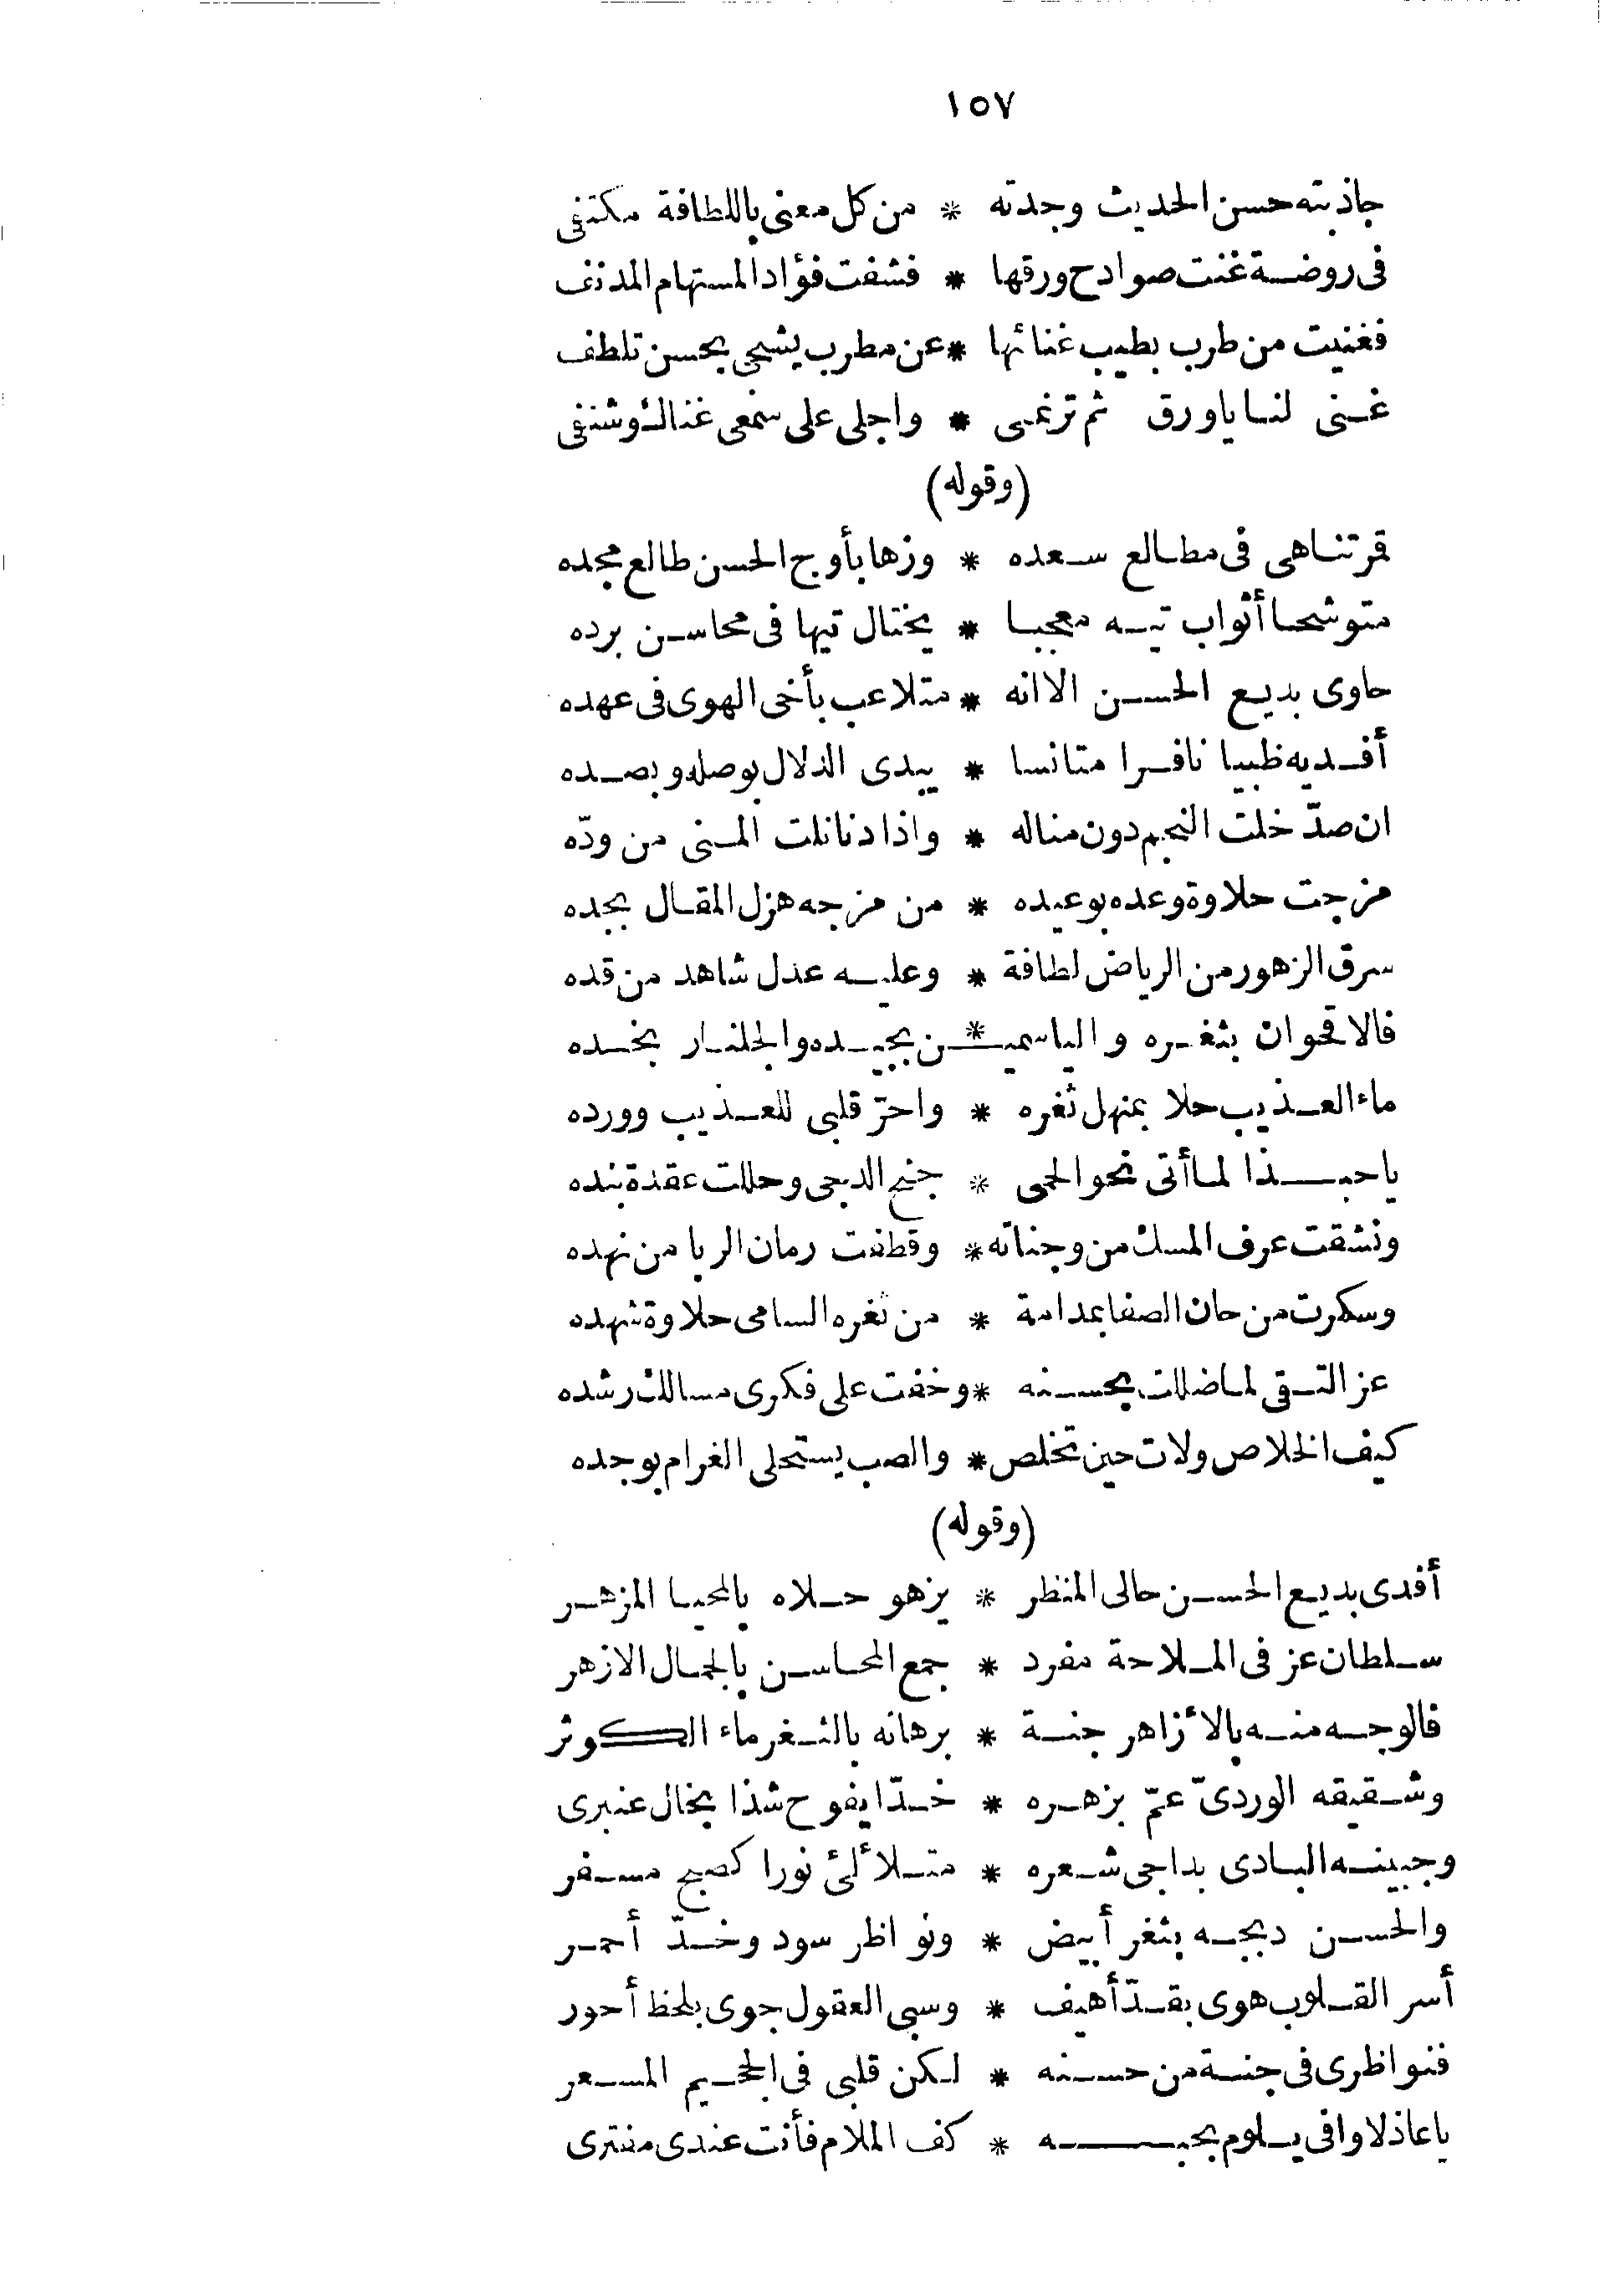 ١٥٧
جاذبته حسن الحديث وجدته * من كل معنى باللطافة مكتفى
فى روضة غنت صوادح ورقها * فشفت فؤاد المستهام المدنف
فغنيت من طرب بطيب غنائها * عن مطرب يشجى بحسن تلطف
غنى لنا ياورق ثم ترنمى * واجلى على سمعى غناك وشنفى
(وقوله)
قمر تناهى فى مطالع سعده * وزها بأوج الحسن طالع مجده
متوشحا أثواب تيه معجبا * يختال تيها فى محاسن برده
حاوى بديع الحسن الا انه * متلاعب بأخى الهوى فى عهده
أفديه ظبيا نافرا متانسا * يبدى الدلال بوصله وبصده
ان صدّ خلت النجم دون مناله * واذا دنا نلت المنى من ودّه
مزجت حلاوة وعده بوعيده * من مزجه هزل المقال بجده
سرق الزهور من الرياض لطافة * وعليه عدل شاهد من قده
فالاقحوان بثغره والياسميـ * ـن بجيده والجلنار بخده
ماء العذيب حلا بمنهل ثغره * واحرّ قلبى للعذيب وورده
ياحبذا لما أتى نحو الحمى * جنح الدجى وحللت عقدة بنده
ونشقت عرف المسك من وجناته * وقطفت رمان الربا من نهده
وسكرت من حان الصفا بمدامة * من ثغره السامى حلاوة شهده
عز التقى لما ضللت بحسنه * وخفت على فكرى مسالك رشده
كيف الخلاص ولات حين تخلص * والصب يستحلى الغرام بوجده
(وقوله)
أفدى بديع الحسن حالى المنظر * يزهو حلاه بالمحيا المزهر
سلطان عز فى الملاحة مفرد * جمع المحاسن بالجمال الازهر
فالوجه منه بالأزاهر جنة * برهانه بالثغر ماء الكوثر
وشقيقه الوردىّ عمّ بزهره * خدّا يفوح شذا بخال عنبرى
وجبينه البادى بداجى شعره * متلألئ نورا كصبح مسفر
والحسن دبجه بثغر أبيض * ونواظر سود وخدّ أحمر
أسر القلوب هوى بقدّ أهيف * وسبى العقول جوى بلحظ أحور
فنواظرى فى جنة من حسنه * لكن قلبى فى الجحيم المسعر
ياعاذلا وافى يلوم بحبه * كف الملام فأنت عندى مفترى